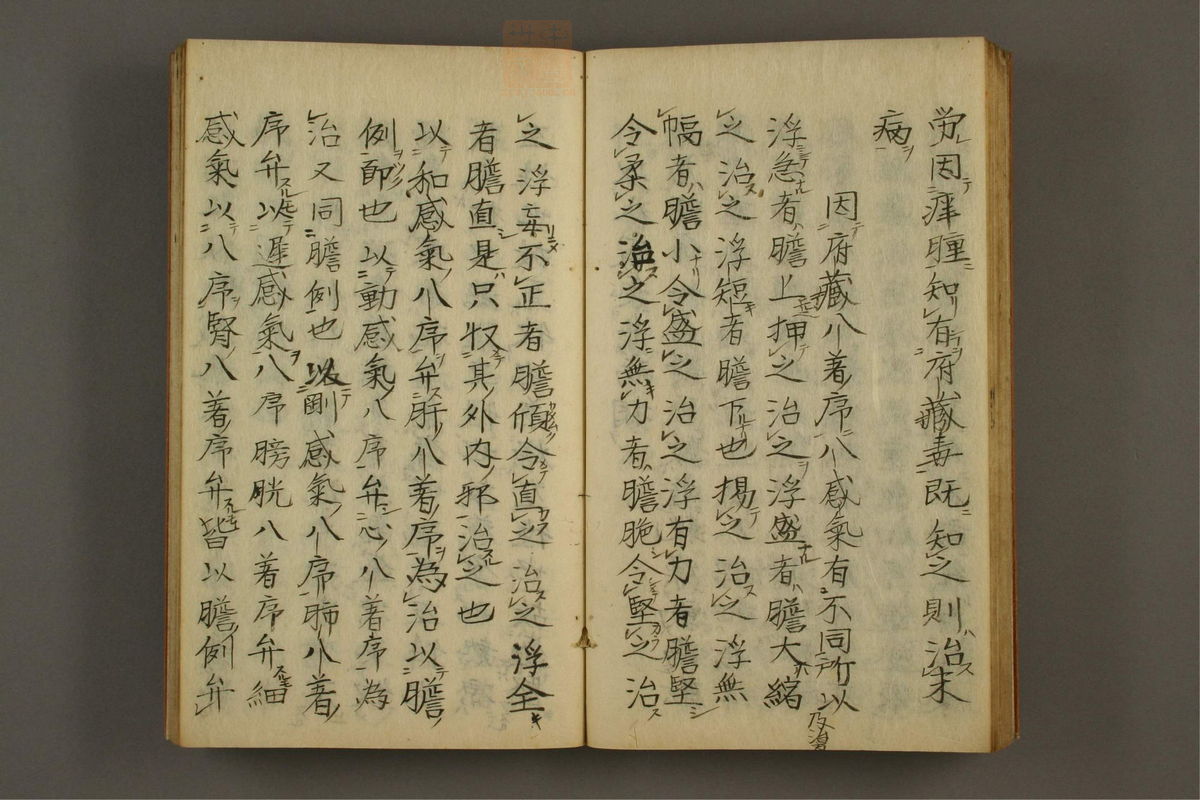 労因痒腫知有府藏毒既知之則治未
病
因府藏八著序八感氣有不同所以
浮急者膽上押之治之浮盛者膽大縮
之治之浮短者膽下也揚之治之浮無
幅者膽小令盛之治之浮有力者膽堅
令柔之治之浮無力者膽脆令堅之治
之浮妄不正者膽傾令直之治之浮全
者膽直是只収其外内邪治之也
以和感氣八序弁肝八著序為治以膽
例即也以動感氣八序弁心八著序為
治又同膽例也以剛感氣八序肺八著
序弁以遲感氣八序膀胱八著序弁細
感氣以八序腎八著序弁皆以膽例弁